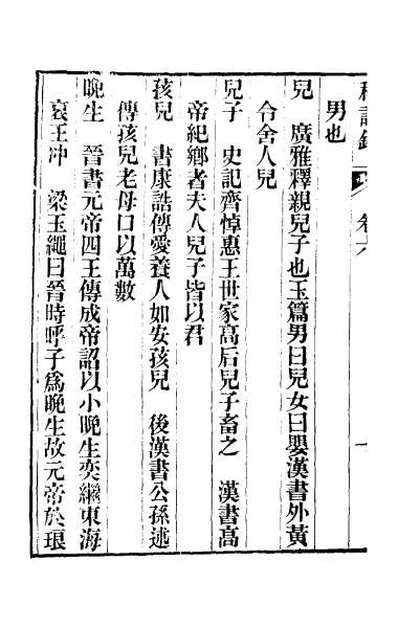 稱謂錄 卷六 一
男也
兒 廣雅釋親兒子也玉篇男曰兒女曰嬰漢書外黃
令舍人兒
兒子 史記齊悼惠王世家高后兒子畜之 漢書高
帝紀鄉者夫人兒子皆以君
孩兒 書康誥傳愛養人如安孩兒 後漢書公孫述
傳孩兒老母口以萬數
晚生 晉書元帝四王傳成帝詔以小晚生奕繼東海
哀王沖 梁玉繩曰晉時呼子爲晚生故元帝於琅